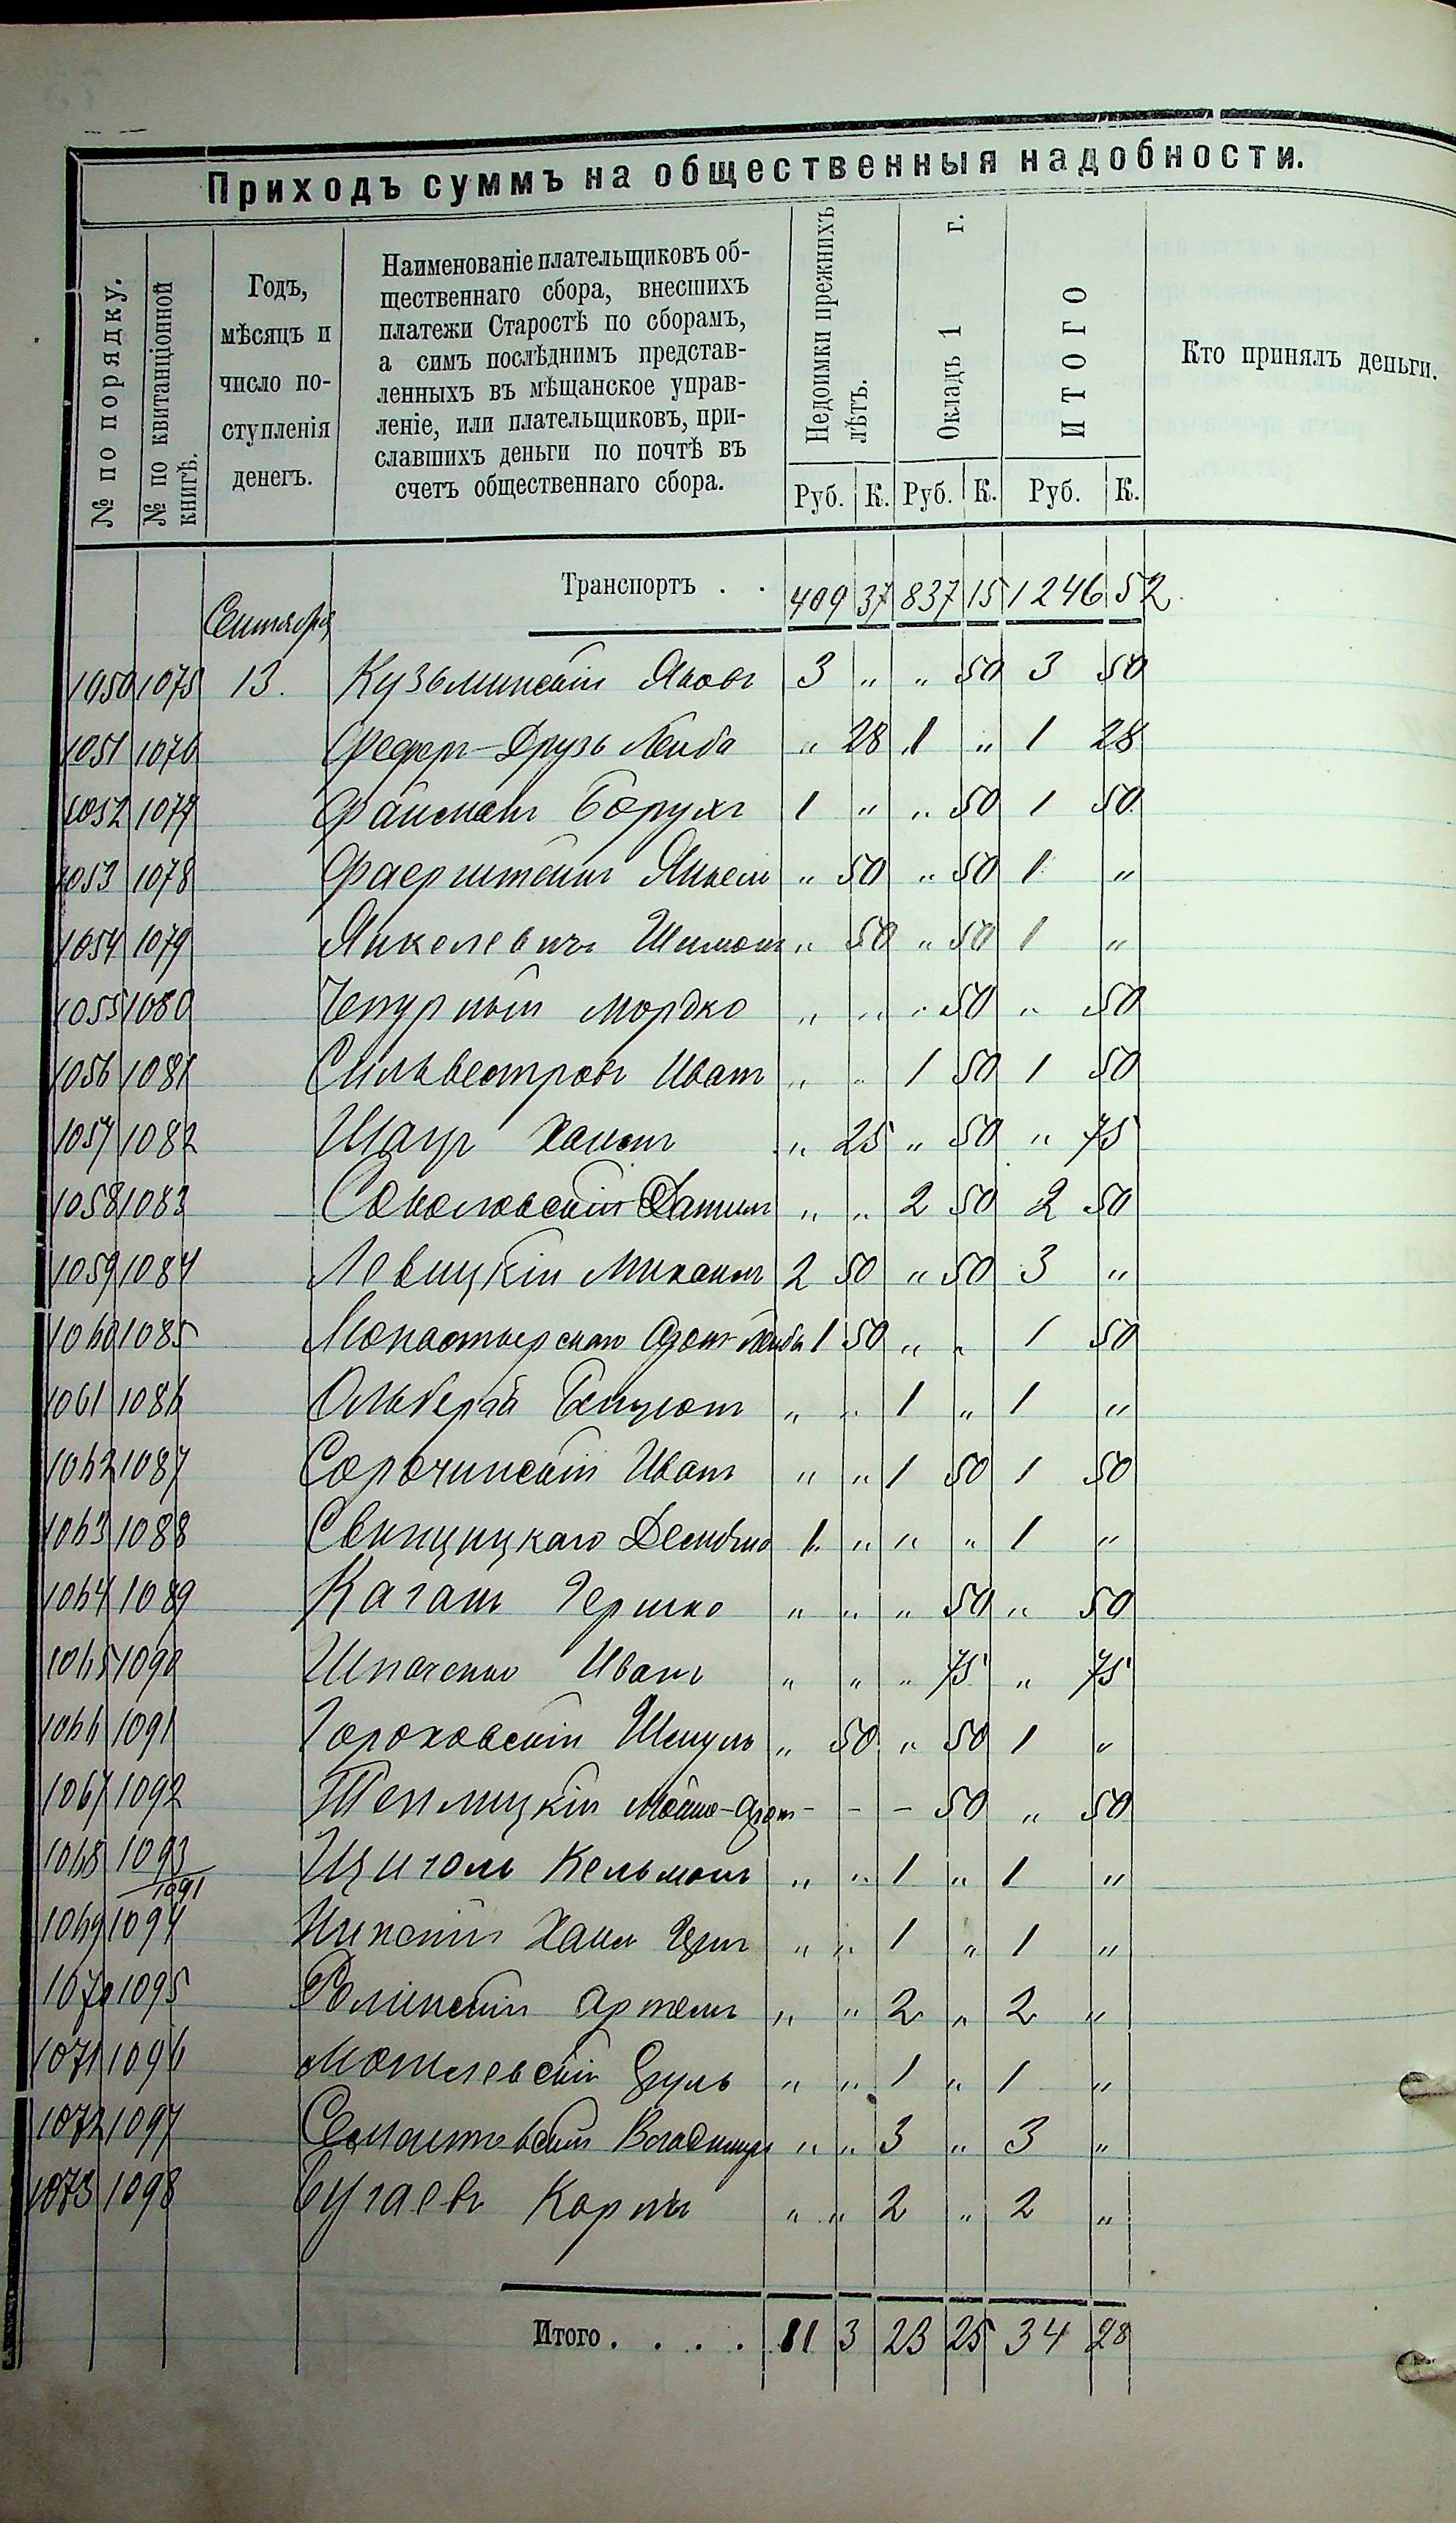 Приходъ суммъ на общественныя надобности.
№ по порядку.
№ по квитанціонной
книгѣ.
Годъ,
мѣсяцъ и
число по-
ступленія
денегъ.
Наименованіе плательщиковъ об-
щественнаго сбора, внесшихъ
платежи Старостѣ по сборамъ,
а симъ послѣднимъ представ-
ленныхъ въ мѣщанское управ-
леніе, или плательщиковъ, при-
славшихъ деньги по почтѣ въ
счетъ общественнаго сбора.
Недоимки прежнихъ
лѣтъ.
Окладъ 1 г.
ИТОГО
Кто принялъ деньги.
Руб. К. Руб. К. Руб. К.
Транспортъ . . 409 37 837 15 1246 52
Сентября
1050 1075 13. Кузьминскій Яковъ 3 " " 50 3 50
1051 1076 Друзь Лейба " 28 1 " 1 28
1052 1077 Файманъ Борухъ 1 " " 50 1 50
1053 1078 Фаерштейнъ Янкель " 50 " 50 1 "
1054 1079 Янкелевичъ Шимонъ " 50 " 50 1 "
1055 1080 Чепурный Мордко " " " 50 " 50
1056 1081 Сильвестровъ Иванъ " " 1 50 1 50
1057 1082 Шацъ " 25 " 50 " 75
1058 1083 Соколовскій " " 2 50 2 50
1059 1084 Левицкій Михаилъ 2 50 " 50 3 "
1060 1085 Лейба 1 50 " " 1 50
1061 1086 " " 1 " 1 "
1062 1087 Сорочинскій Иванъ " " 1 50 1 50
1063 1088 Свинцицкаго 1 " " " 1 "
1064 1089 Каганъ Гершко " " " 50 " 50
1065 1090 Шпаченко Иванъ " " " 75 " 75
1066 1091 Гороховскій Шмуль " 50 " 50 1 "
1067 1092 Теплицкій - - - 50 " 50
1068 1093 Щиголь Кельманъ " " 1 " 1 "
1091
1069 1094 Хаим " " 1 " 1 "
1070 1095 " " 2 " 2 "
1071 1096 Могилевскій Сруль " " 1 " 1 "
1072 1097 Владимиръ " " 3 " 3 "
1073 1098 Бугаевъ Карпъ " " 2 " 2 "
Итого . . . . 11 3 23 25 34 28